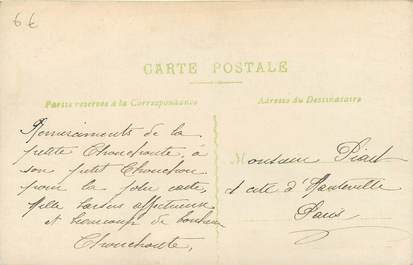 6€
CARTE POSTALE
Partie réservée à la Correspondance
Adresse du Destinataire
Remerciments de la
petite Chouchoute, à
son petit Chouchou
pour la jolie carte
Mille baisers affectueux
et beaucoup de bonheur
Chouchoute,
Monsieur
1 cité d'Hauteville
Paris